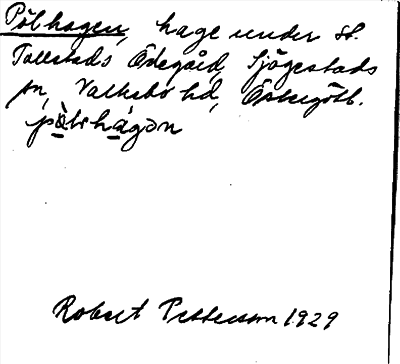 Pölhagen, hage under St.
Tollstads Ödegård, Sjögestads
sn, Valkebo hd, Östergötl.
Robert Pettersson 1929